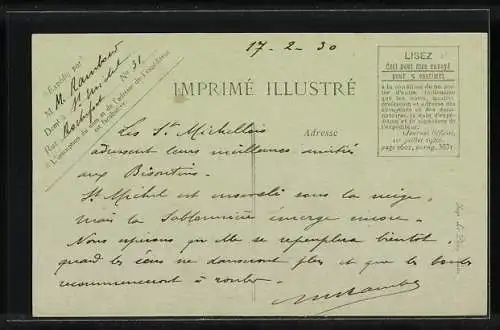 17-2-30
Expédié par
M. M. Rambaud
Dont à St Michel
Rue Rochefort No 31
L'inscription du nom et de l'adresse de l'expéditeur
est facultative
IMPRIMÉ ILLUSTRÉ
Adresse
LISEZ
Ceci peut être envoyé
pour 5 centimes
à la condition de ne por-
ter d'autre indication
que les nom, qualité,
profession et adresse
du destinataire, la date
d'expédition et la signature de
l'expéditeur.
(Journal Officiel,
11 juillet 1920,
page 9802, parag. 367)
Les St Michellois
adressent leurs meilleures amitiés
aux Bisontins.
St Michel est enseveli sous la neige,
mais la Sablonnière émerge encore.
Nous espérons qu'elle se repeuplera bientôt,
quand les ours ne danseront plus et que les boules
recommenceront à rouler.
MRambaud